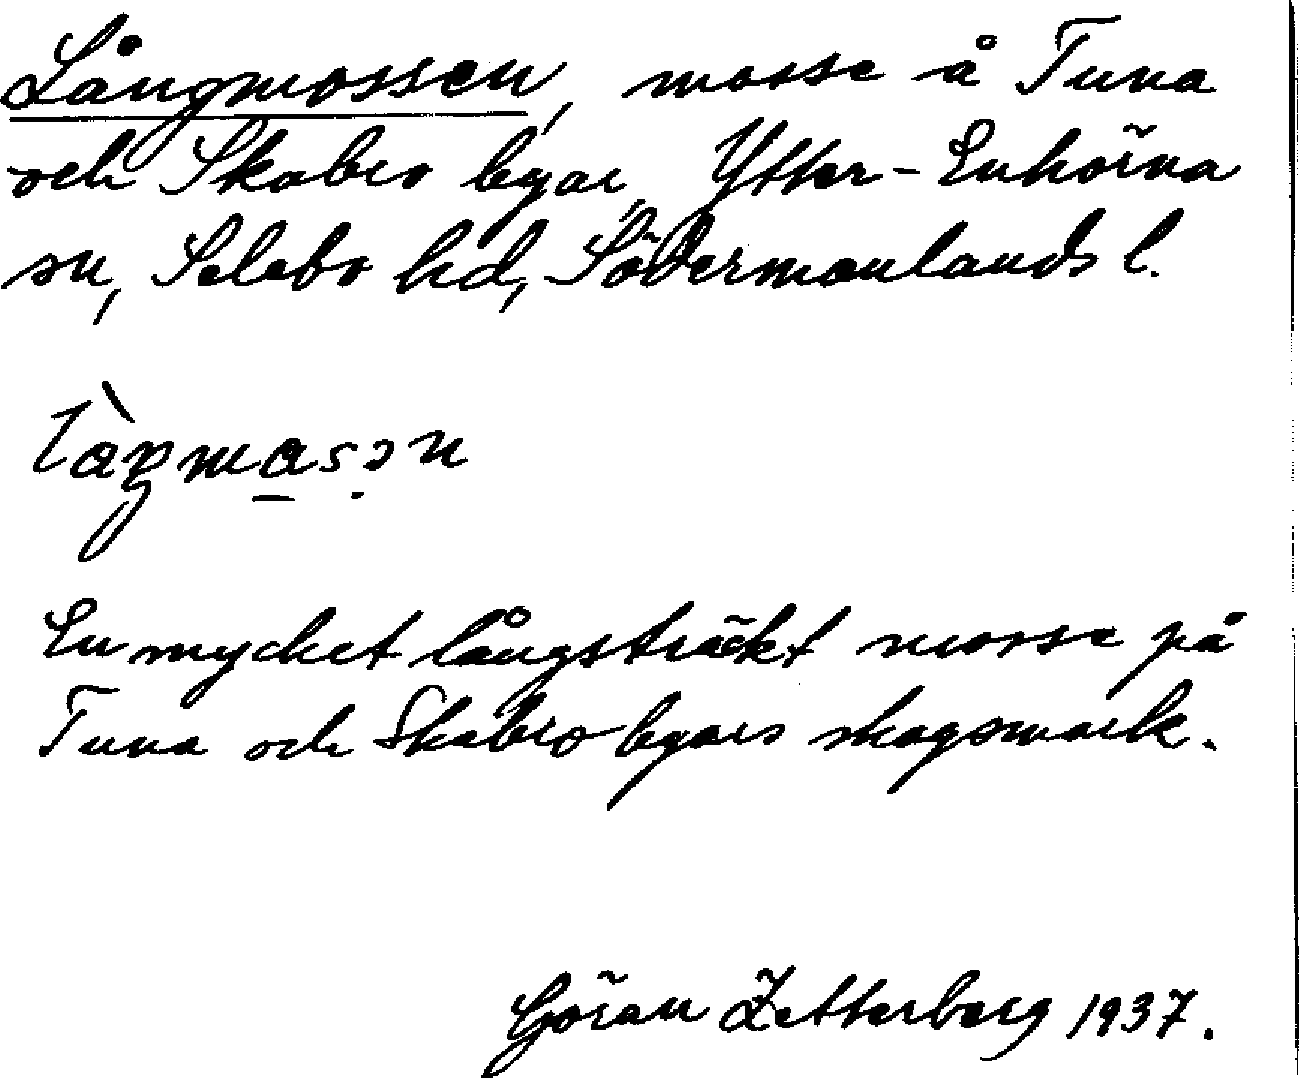 Långmossen, mosse å Tuna
och Skabro byar, Ytter-Enhörna
sn, Selebo hd, Södermanlands l.
En mycket långsträckt mosse på
Tuna och Skabro byars skogsmark.
Göran Zetterberg 1937.